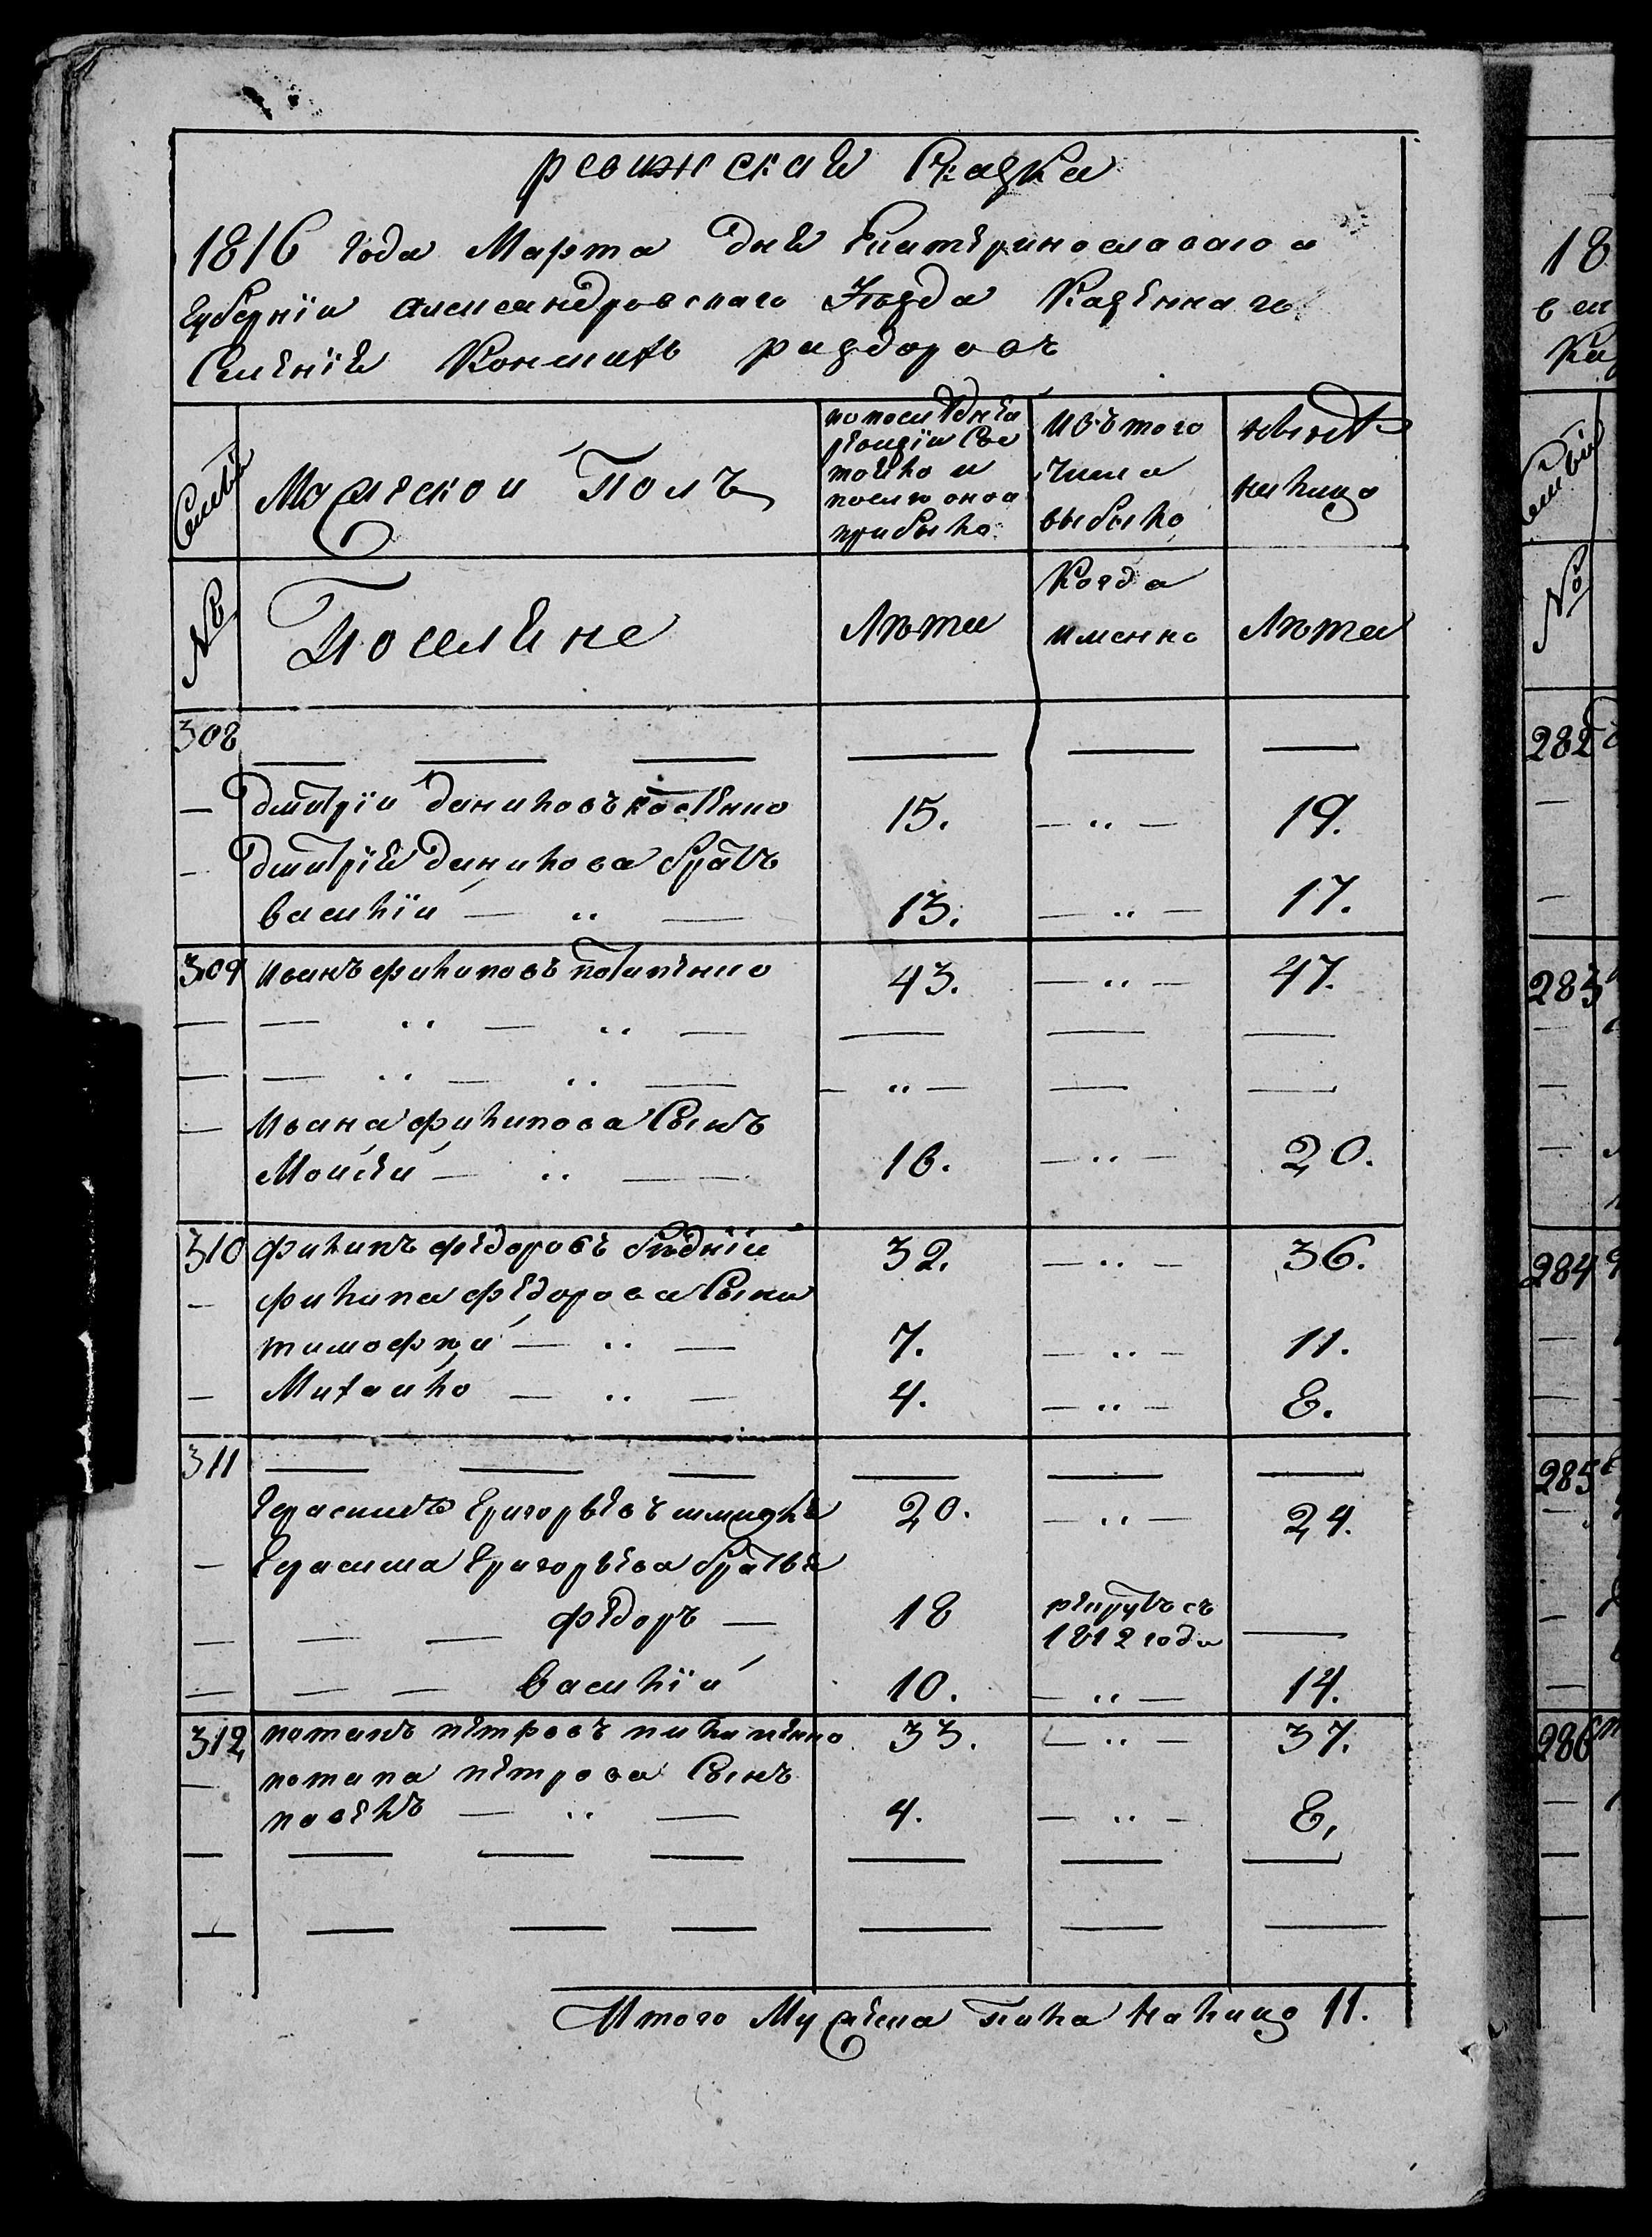 ревижская Сказка
1816 года Марта дня Екатеринославскаго
Губернїи Александровскаго Уѣзда Казеннаго
Селенїя Конскихъ раздоровъ
Семьи
Мужеской Полъ
по последней
ревизїи Сос
тояло и
после оной
прибыло
Изъ того
числа
выбыло
ныне
на лицо
№
Поселяне
Лѣта
Когда
именно
Лѣта
308
— — — — — —
— дмитрїи даниловъ костенко 15. — „ — 19.
— дмитрїя данилова братъ
василїй — „ — 13. — „ — 17.
309 иванъ филиповъ потапенко 43. — „ — 47.
— — „ — „ — — — —
— — „ — „ — — „ — — —
— ивана филипова Сынъ
Моисей — „ — 16. — „ — 20.
310 филипъ федоровъ бѣднїй 32. — „ — 36.
— филипа федорова Сыны
тимофѣй — „ — 7. — „ — 11.
— Михайло — „ — 4. — „ — 8.
311 — — — — — —
Герасимъ Григорьевъ 20. — „ — 24.
— Герасима Григорьева братья
— — — федоръ — 18 рекрутъ съ
1812 года —
— — — василїй 10. — „ — 14.
312 потапъ петровъ пилипенко 33. — „ — 37.
— потапа петрова Сынъ
павелъ — „ — 4. — „ — 8.
— — — — — — —
— — — — — — —
Итого Мужеска пола на лицо 11.
18
в ел
Ка
Семьи
№
282
—
—
283
—
—
—
284
—
—
285
—
—
—
286
—
—
—